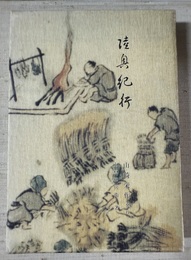 陸奥紀行
山